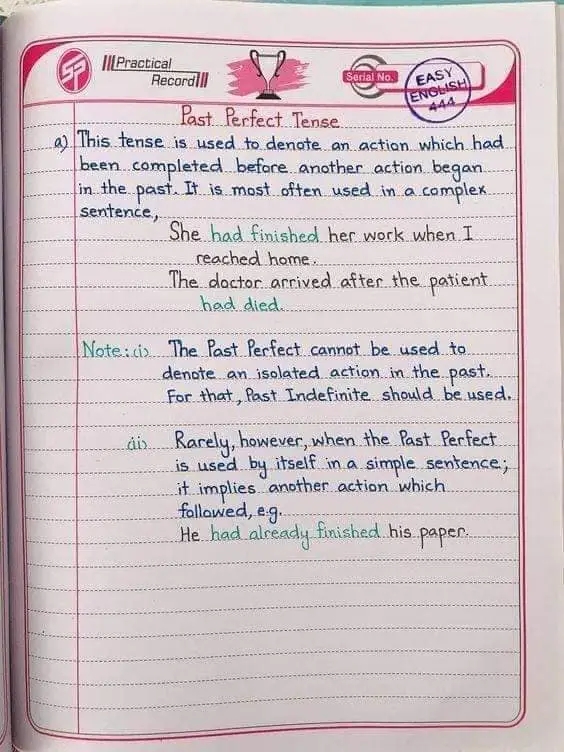 Practical
Record
Serial No.
EASY
ENGLISH
444
Past Perfect Tense
a) This tense is used to denote an action which had
been completed before another action began
in the past. It is most often used in a complex
sentence,
She had finished her work when I
reached home.
The doctor arrived after the patient
had died.
Note: (i) The Past Perfect cannot be used to
denote an isolated action in the past.
For that, Past Indefinite should be used.
(ii) Rarely, however, when the Past Perfect
is used by itself in a simple sentence;
it implies another action which
followed, e.g.
He had already finished his paper.